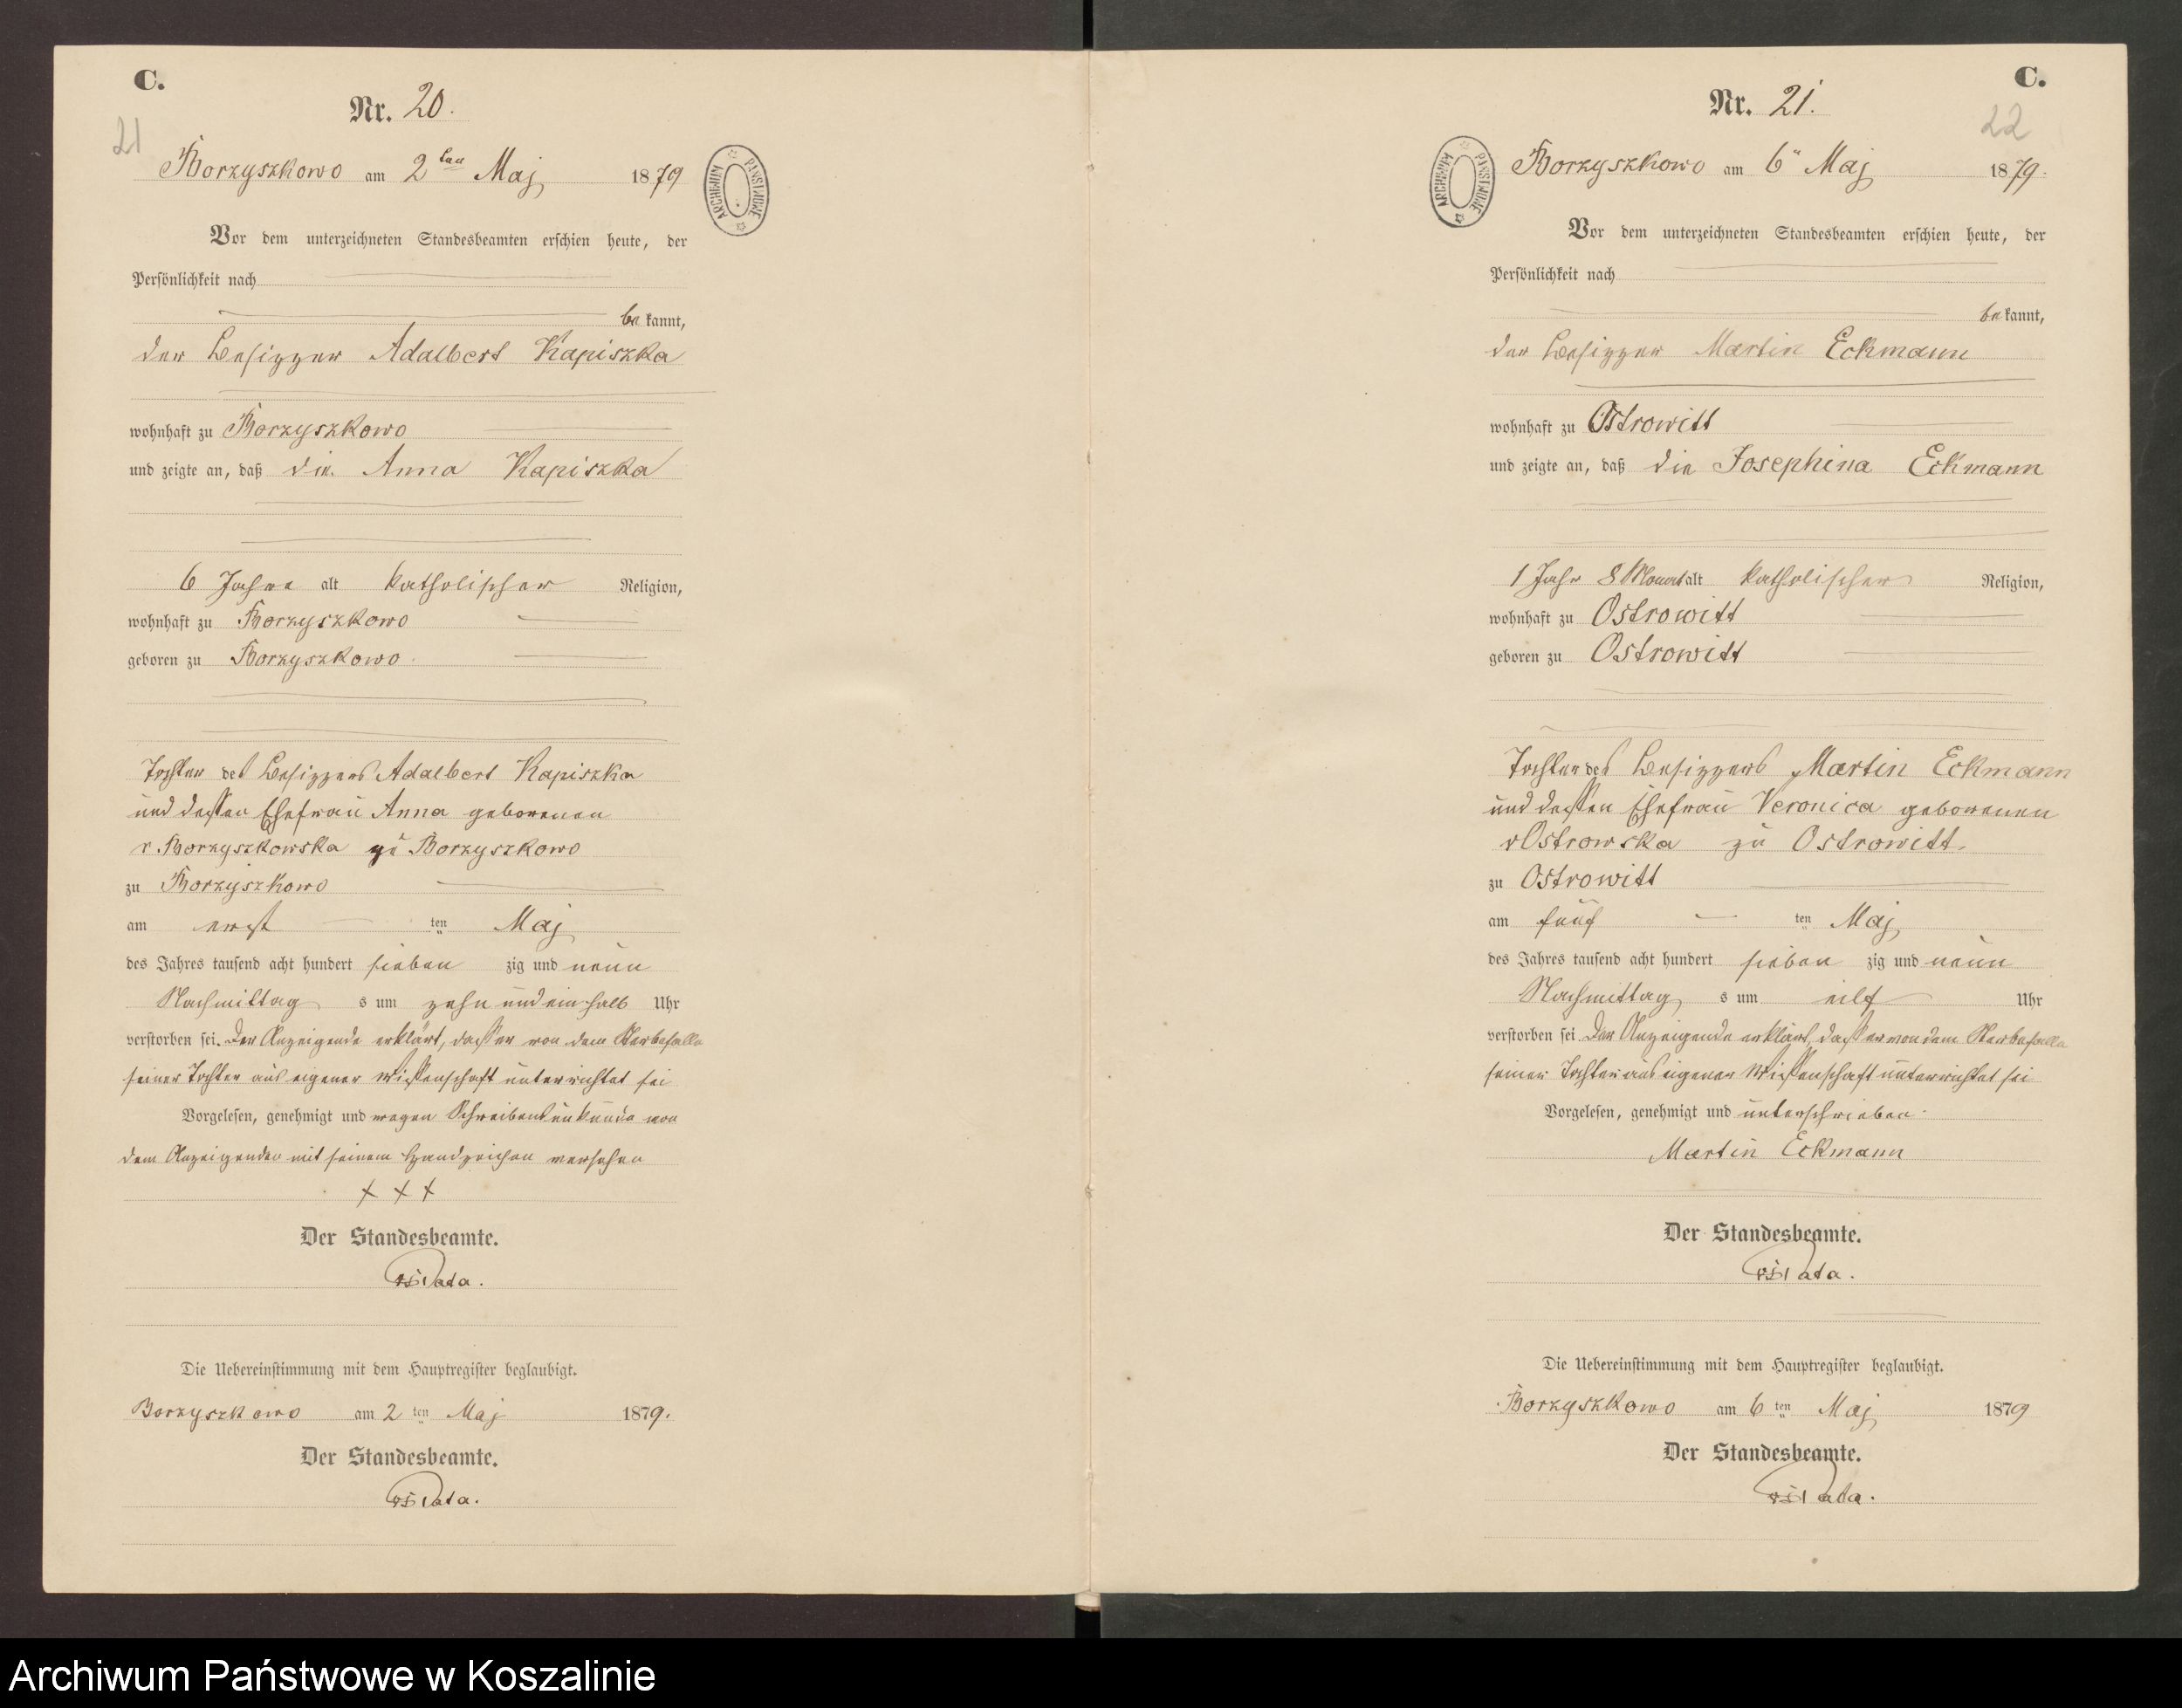 C.
21
Nr. 20.
Borzyszkowo am 2ten Maj 1879
ARCHIWUM PAŃSTWOWE
Vor dem unterzeichneten Standesbeamten erschien heute, der
Persönlichkeit nach
be kannt,
der Besizzer Adalbert Kapiszka
wohnhaft zu Borzyszkowo
und zeigte an, daß die Anna Kapiszka
6 Jahre alt katholischer Religion,
wohnhaft zu Borzyszkowo
geboren zu Borzyszkowo
Tochter des Besizzers Adalbert Kapiszka
und dessen Ehefrau Anna geborenen
v. Borzyszkowska zu Borzyszkowo
zu Borzyszkowo
am erst ten Maj
des Jahres tausend acht hundert sieben zig und neun
Nachmittag s um zehn und ein halb Uhr
verstorben sei. Der Anzeigende erklärt, dass er von dem Sterbefalle
seiner Tochter aus eigener Wissenschaft unterrichtet sei
Vorgelesen, genehmigt und wegen Schreibensunkunde von
dem Anzeigenden mit seinem Handzeichen versehen
+ + +
Der Standesbeamte.
Die Uebereinstimmung mit dem Hauptregister beglaubigt.
Borzyszkowo am 2 ten Maj 1879.
Der Standesbeamte.
C.
22
Nr. 21.
Borzyszkowo am 6" Maj 1879.
ARCHIWUM PAŃSTWOWE
Vor dem unterzeichneten Standesbeamten erschien heute, der
Persönlichkeit nach
be kannt,
der Besizzer Martin Eckmann
wohnhaft zu Ostrowitt
und zeigte an, daß die Josephina Eckmann
1 Jahr 8 Monat alt katholischer Religion,
wohnhaft zu Ostrowitt
geboren zu Ostrowitt
Tochter des Besizzers Martin Eckmann
und dessen Ehefrau Veronica geborenen
v Ostrowska zu Ostrowitt.
zu Ostrowitt
am fünf ten Maj
des Jahres tausend acht hundert sieben zig und neun
Nachmittag s um eilf Uhr
verstorben sei. Der Anzeigende erklärt, dass er von dem Sterbefalle
seiner Tochter aus eigener Wissenschaft unterrichtet sei
Vorgelesen, genehmigt und unterschrieben
Martin Eckmann
Der Standesbeamte.
Die Uebereinstimmung mit dem Hauptregister beglaubigt.
Borzyszkowo am 6 ten Maj 1879
Der Standesbeamte.
Archiwum Państwowe w Koszalinie